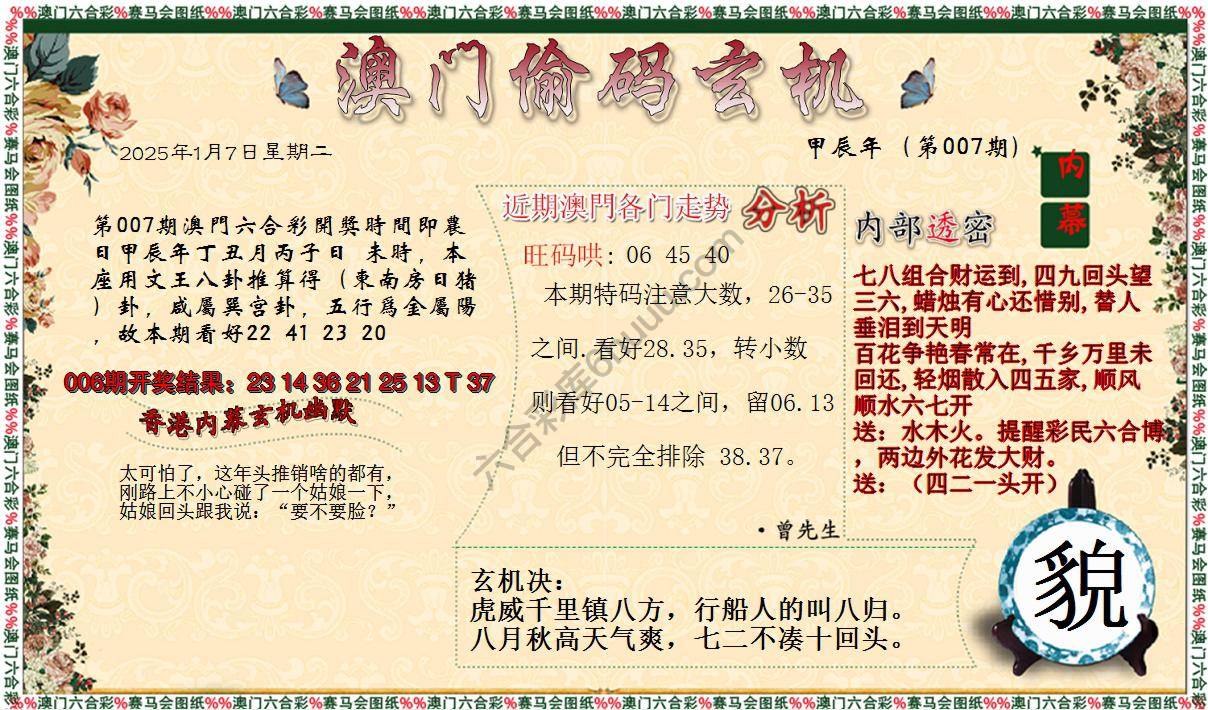 %%澳门六合彩%赛马会图纸%%澳门六合彩%赛马会图纸%%澳门六合彩%赛马会图纸%%澳门六合彩%赛马会图纸%%澳门六合彩%赛马会图纸%%澳门六合彩%赛马会图纸%%
澳门偷码玄机
2025年1月7日星期二
甲辰年（第007期）
内
幕
第007期澳門六合彩開獎時間即農
日甲辰年丁丑月丙子日 未時，本
座用文王八卦推算得（東南房日猪
）卦，咸屬巽宫卦，五行爲金屬陽
，故本期看好22 41 23 20
006期开奖结果：23 14 36 21 25 13 T 37
香港内幕玄机幽默
太可怕了，这年头推销啥的都有，
刚路上不小心碰了一个姑娘一下，
姑娘回头跟我说：“要不要脸？”
近期澳門各门走势 分析
旺码哄: 06 45 40
本期特码注意大数，26-35
之间.看好28.35，转小数
则看好05-14之间，留06.13
但不完全排除 38.37。
·曾先生
内部透密
七八组合财运到,四九回头望
三六,蜡烛有心还惜别,替人
垂泪到天明
百花争艳春常在,千乡万里未
回还,轻烟散入四五家,顺风
顺水六七开
送：水木火。提醒彩民六合博
，两边外花发大财。
送：（四二一头开）
玄机决：
虎威千里镇八方，行船人的叫八归。
八月秋高天气爽，七二不凑十回头。
貌
%%澳门六合彩%赛马会图纸%%澳门六合彩%赛马会图纸%%澳门六合彩%赛马会图纸%%澳门六合彩%赛马会图纸%%澳门六合彩%赛马会图纸%%澳门六合彩%赛马会图纸%%